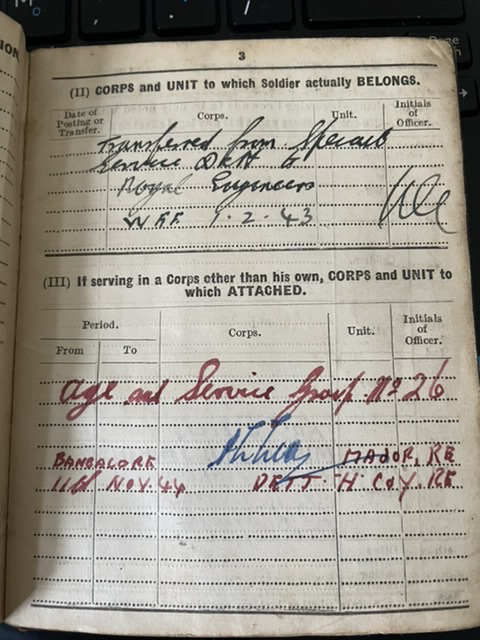 3
(II) CORPS and UNIT to which Soldier actually BELONGS.
Date of Posting or Transfer.
Corps.
Unit.
Initials of Officer.
Transferred from Special
Service Dett to
Royal Engineers
W.E.F. 1.2.43
(III) If serving in a Corps other than his own, CORPS and UNIT to
which ATTACHED.
Period.
From
To
Corps.
Unit.
Initials of Officer.
Age and Service Group No 26
BANGALORE
MAJOR, RE
11th NOV. 44
DETT. "H" COY. RE